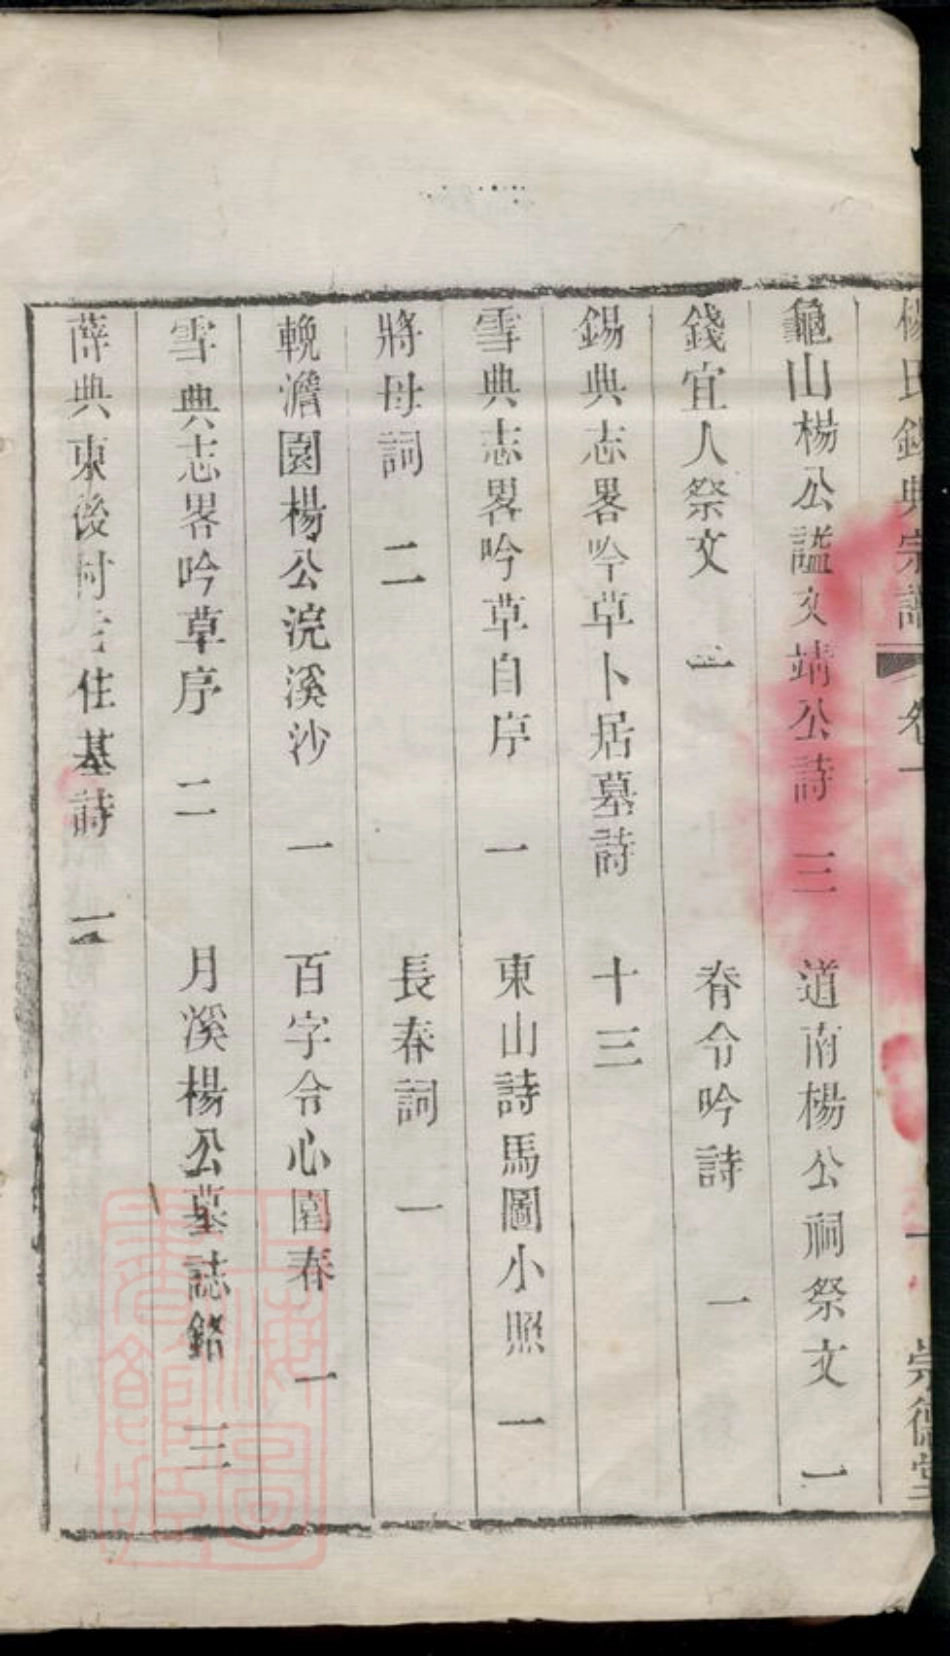 楊氏錫典宗譜 卷一 一 崇德堂
龜山楊公謚文靖公詩 三 道南楊公祠祭文 一
錢宜人祭文 脊令吟詩 一
錫典志畧吟草卜居墓詩 十三
雪典志畧吟草自序 一 東山詩馬圖小照 一
將母詞 二 長春詞 一
輓澹園楊公浣溪沙 一 百字令心園春 一
雪典志畧吟草序 二 月溪楊公墓誌銘 三
薛典東後村 住基詩 一
上海圖書館藏